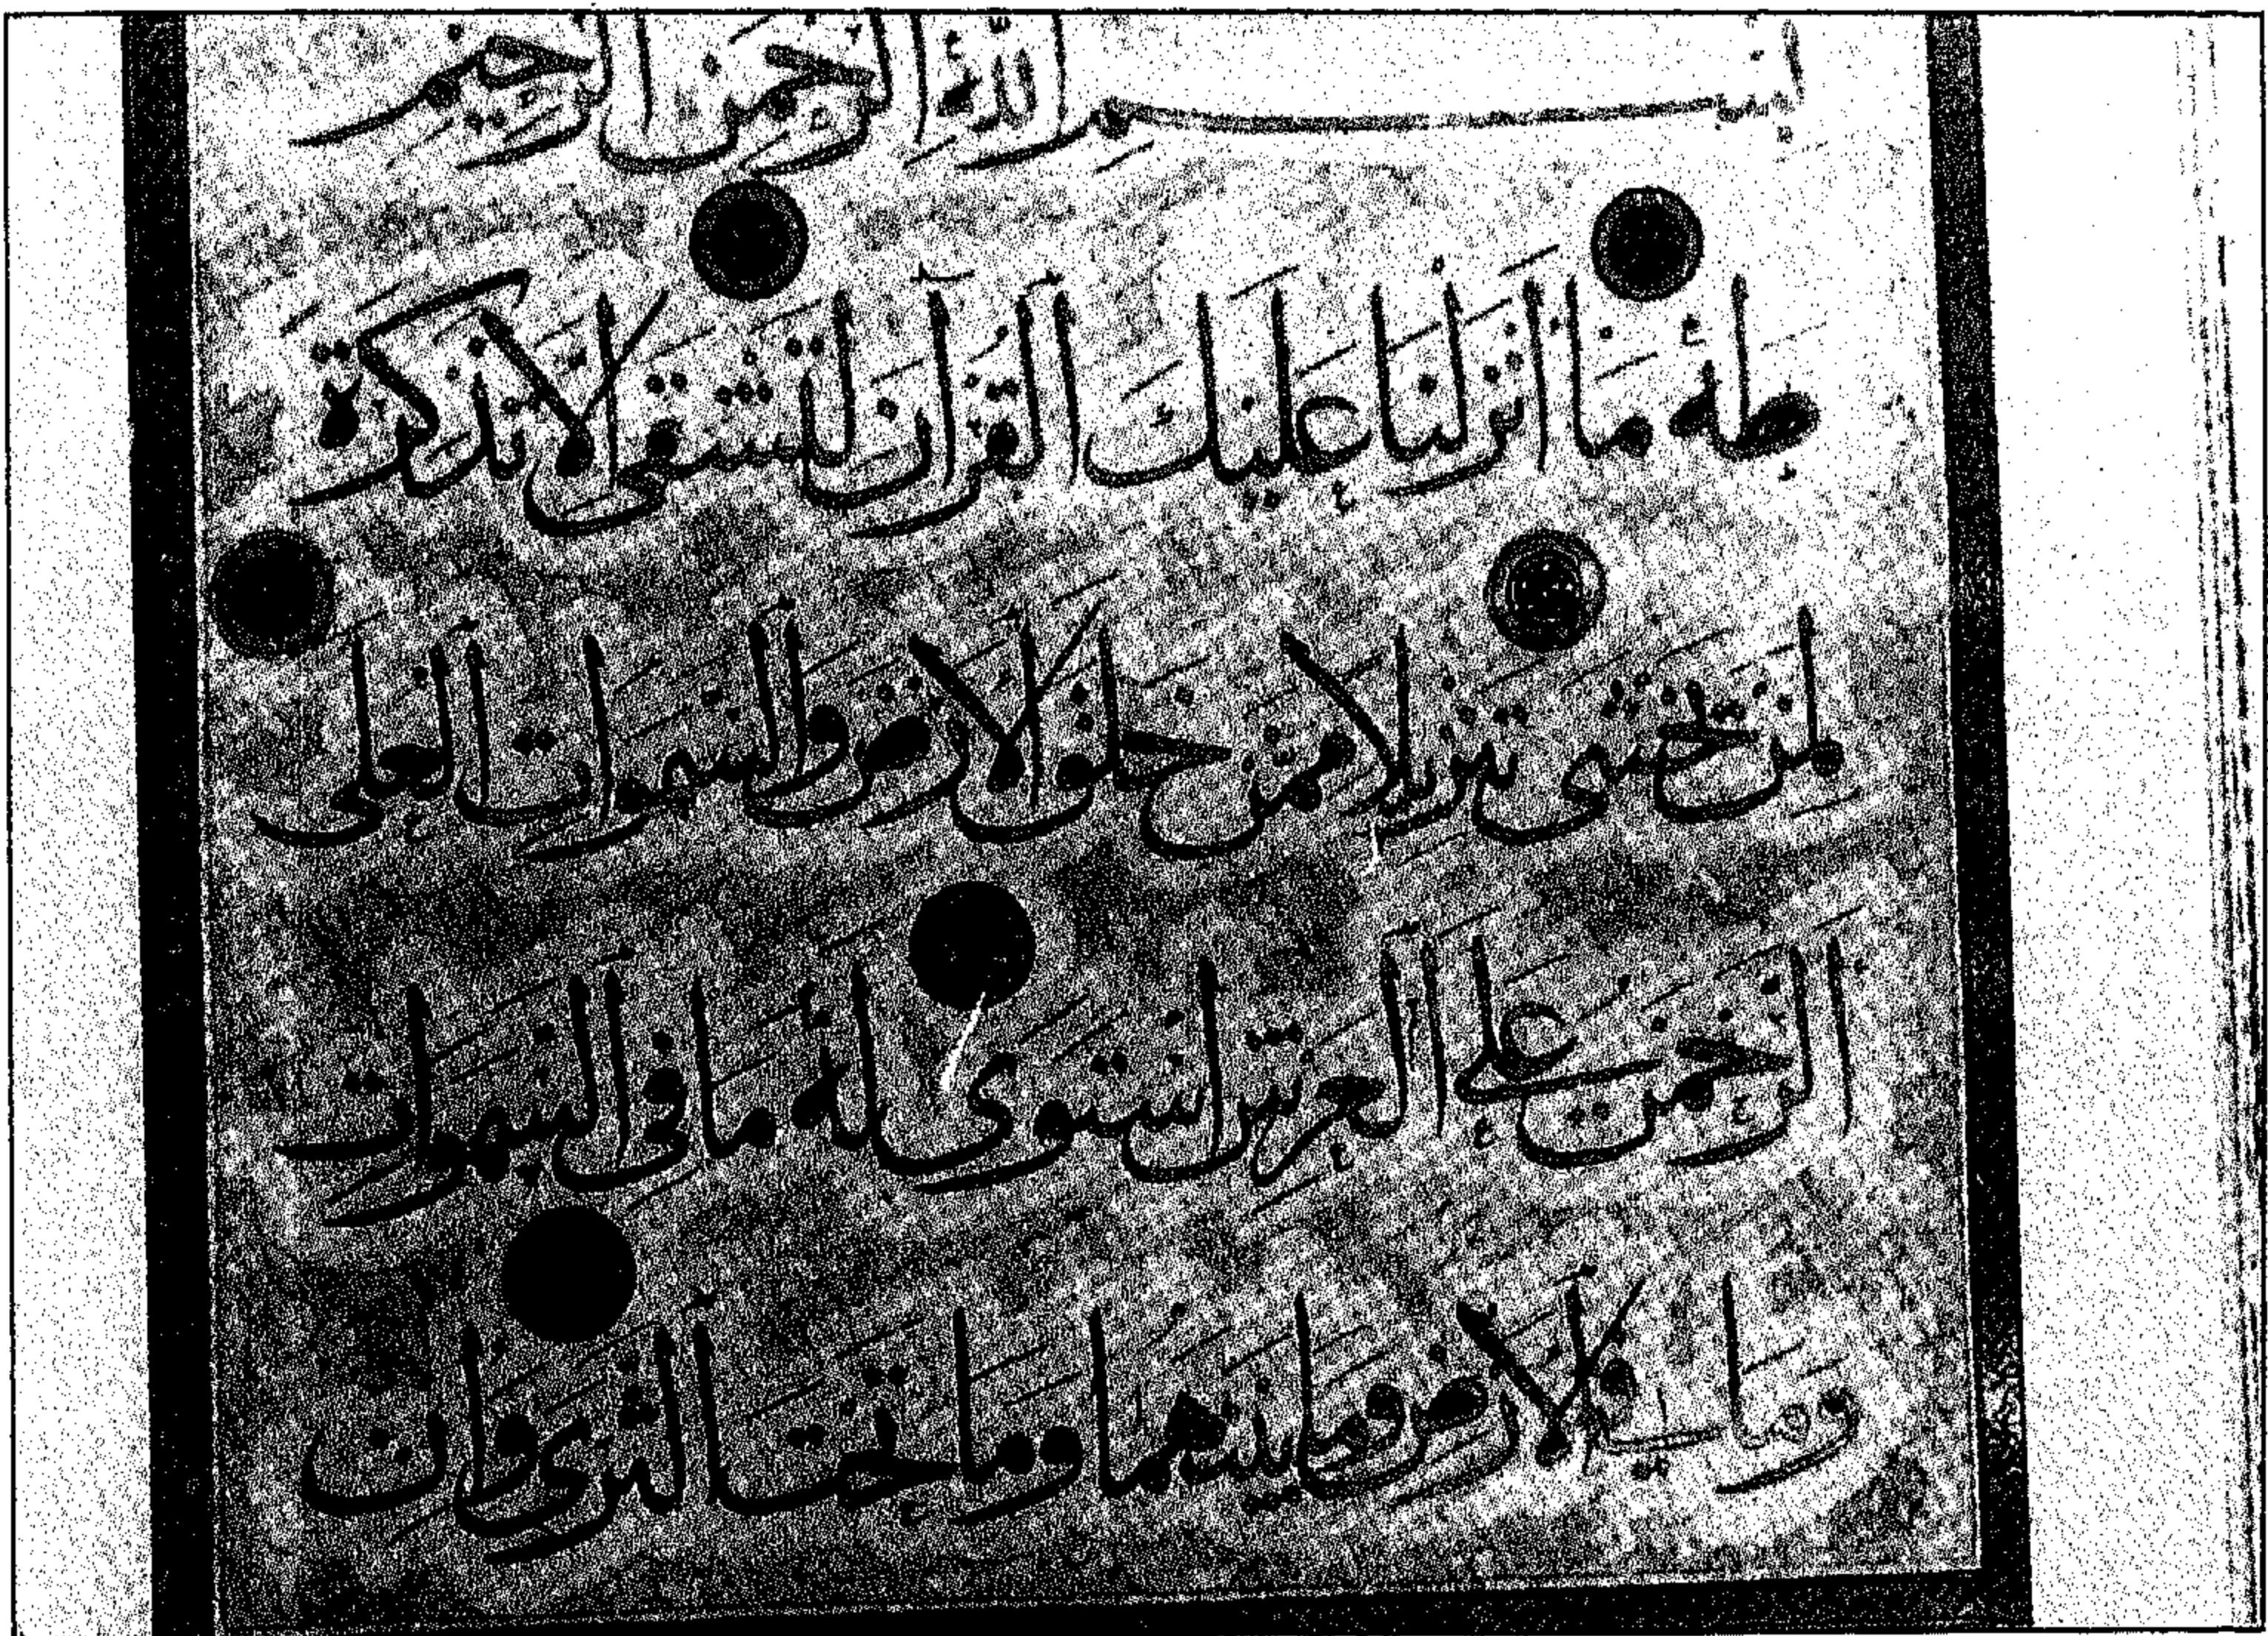 بسم الله الرحمن الرحيم
طه ما انزلنا عليك القرآن لتشقى الا تذكرة
لمن يخشى تنزيلا ممن خلق الارض والسموات العلى
الرحمن على العرش استوى له ما فى السموات
وما فى الارض وما بينهما وما تحت الثرى وان